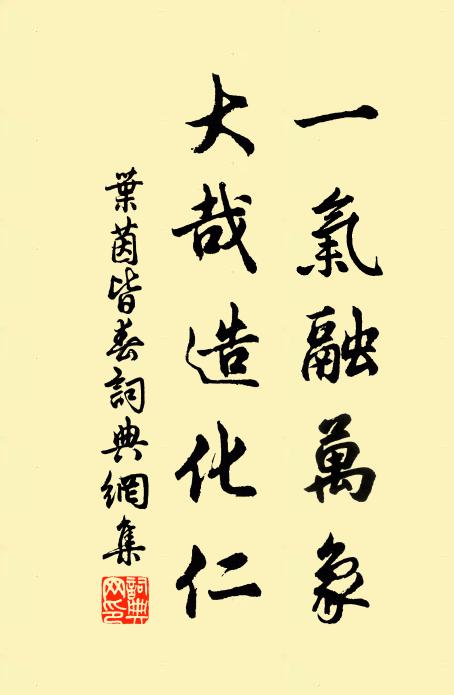 一氣融萬象
大哉造化仁
葉茵皆春詞典網集
詞典网印